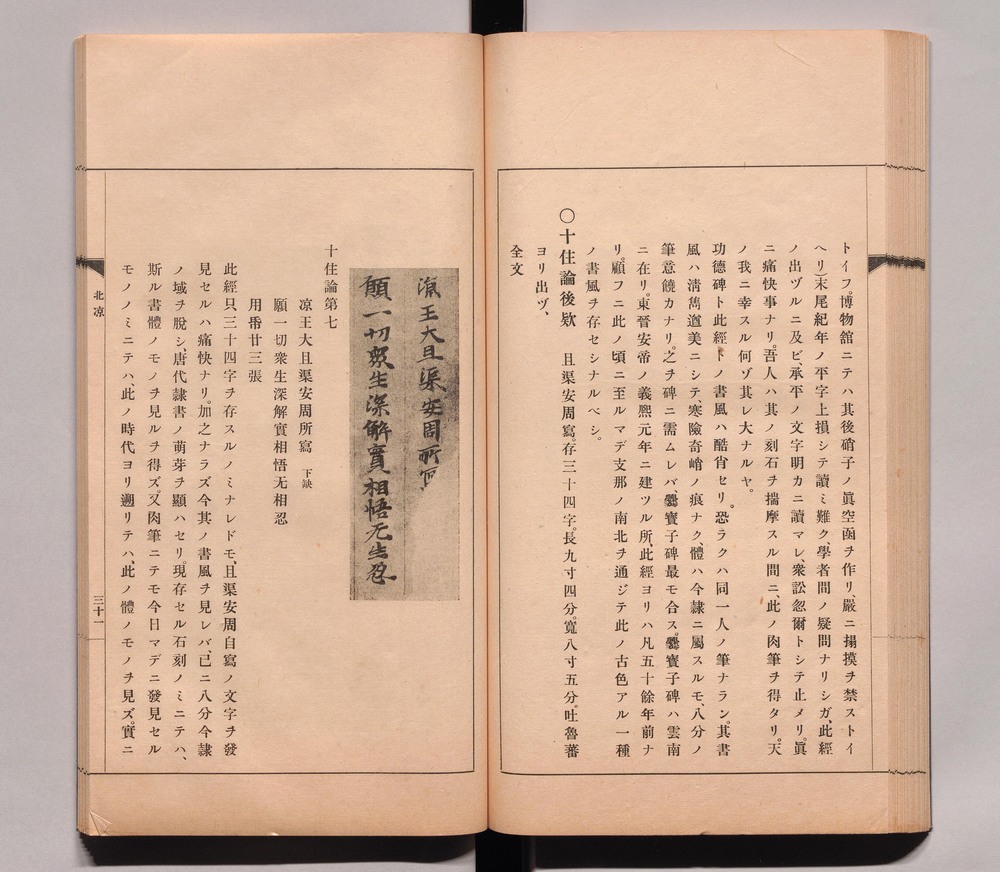 トイフ。博物館ニテハ其後硝子ノ眞空函ヲ作リ、嚴ニ搨摸ヲ禁ストイ
ヘリ）末尾紀年ノ平字上損シテ讀ミ難ク、學者間ノ疑問ナリシガ、此經
ノ出ヅルニ及ビ、承平ノ文字明カニ讀マレ、衆訟忽爾トシテ止メリ。眞
ニ痛快事ナリ。吾人ハ其ノ刻石ヲ揣摩スル間ニ、此ノ肉筆ヲ得タリ。天
ノ我ニ幸スル何ゾ其レ大ナルヤ。
功德碑ト此經トノ書風ハ酷肖セリ。恐ラクハ同一人ノ筆ナラン。其書
風ハ淸雋遒美ニシテ、寒險奇峭ノ痕ナク、體ハ今隷ニ屬スルモ、八分ノ
筆意饒カナリ。之ヲ碑ニ需ムレバ、爨寶子碑最モ合ス。爨寶子碑ハ雲南
ニ在リ。東晉安帝ノ義熙元年ニ建ツル所、此經ヨリハ凡五十餘年前ナ
リ。顧フニ此ノ頃ニ至ルマデ支那ノ南北ヲ通ジテ此ノ古色アル一種
ノ書風ヲ存セシナルベシ。
〇十住論後欵 且渠安周寫。存三十四字。長九寸四分。寬八寸五分。吐魯蕃
ヨリ出ヅ、
全文
涼王大且渠安周所寫
願一切衆生深解實相悟无生忍
十住論第七
凉王大且渠安周所寫 下缺
願一切衆生深解實相悟无相忍
用帋廿三張
此經只三十四字ヲ存スルノミナレドモ、且渠安周自寫ノ文字ヲ發
見セルハ痛快ナリ。加之ナラズ今其ノ書風ヲ見レバ、已ニ八分今隷
ノ域ヲ脫シ、唐代隷書ノ萌芽ヲ顯ハセリ。現存セル石刻ノミニテハ、
斯ル書體ノモノヲ見ルヲ得ズ。又肉筆ニテモ今日マデニ發見セル
モノノミニテハ、此ノ時代ヨリ遡リテハ、此ノ體ノモノヲ見ズ。實ニ
北凉
三十一